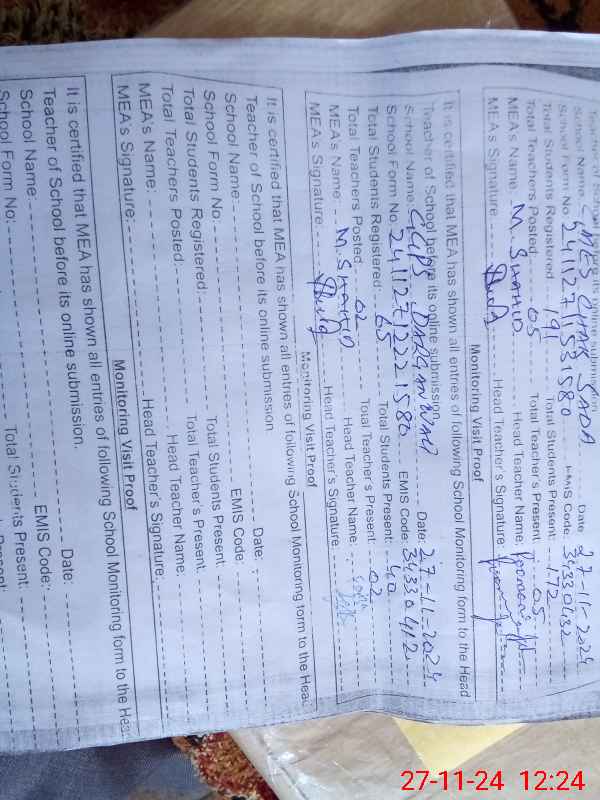 Teacher of School before its online submission
School Name: GMES CHAK SADA Date 27-11-2024
School Form No: 2411271531580 EMIS Code: 34330432
Total Students Registered: 191 Total Students Present: 172
Total Teachers Posted: 05 Total Teacher's Present: 05
MEA's Name: M. SHAHID Head Teacher Name:
MEA's Signature Head Teacher's Signature
Monitoring Visit Proof
It is certified that MEA has shown all entries of following School Monitoring form to the Head
Teacher of School before its online submission
School Name: GGPS DARGANWALI Date: 27-11-2024
School Form No: 2411271221580 EMIS Code: 34330412
Total Students Registered: 65 Total Students Present: 40
Total Teachers Posted: 02 Total Teacher's Present: 02
MEA's Name: M. SHAHID Head Teacher Name:
MEA's Signature Head Teacher's Signature
Monitoring Visit Proof
It is certified that MEA has shown all entries of following School Monitoring form to the Head
Teacher of School before its online submission
School Name: Date:
School Form No: EMIS Code:
Total Students Registered: Total Students Present:
Total Teachers Posted: Total Teacher's Present:
MEA's Name: Head Teacher Name:
MEA's Signature: Head Teacher's Signature:
Monitoring Visit Proof
It is certified that MEA has shown all entries of following School Monitoring form to the Hea
Teacher of School before its online submission.
School Name: Date:
School Form No: EMIS Code:
Total Students Present:
27-11-24 12:24